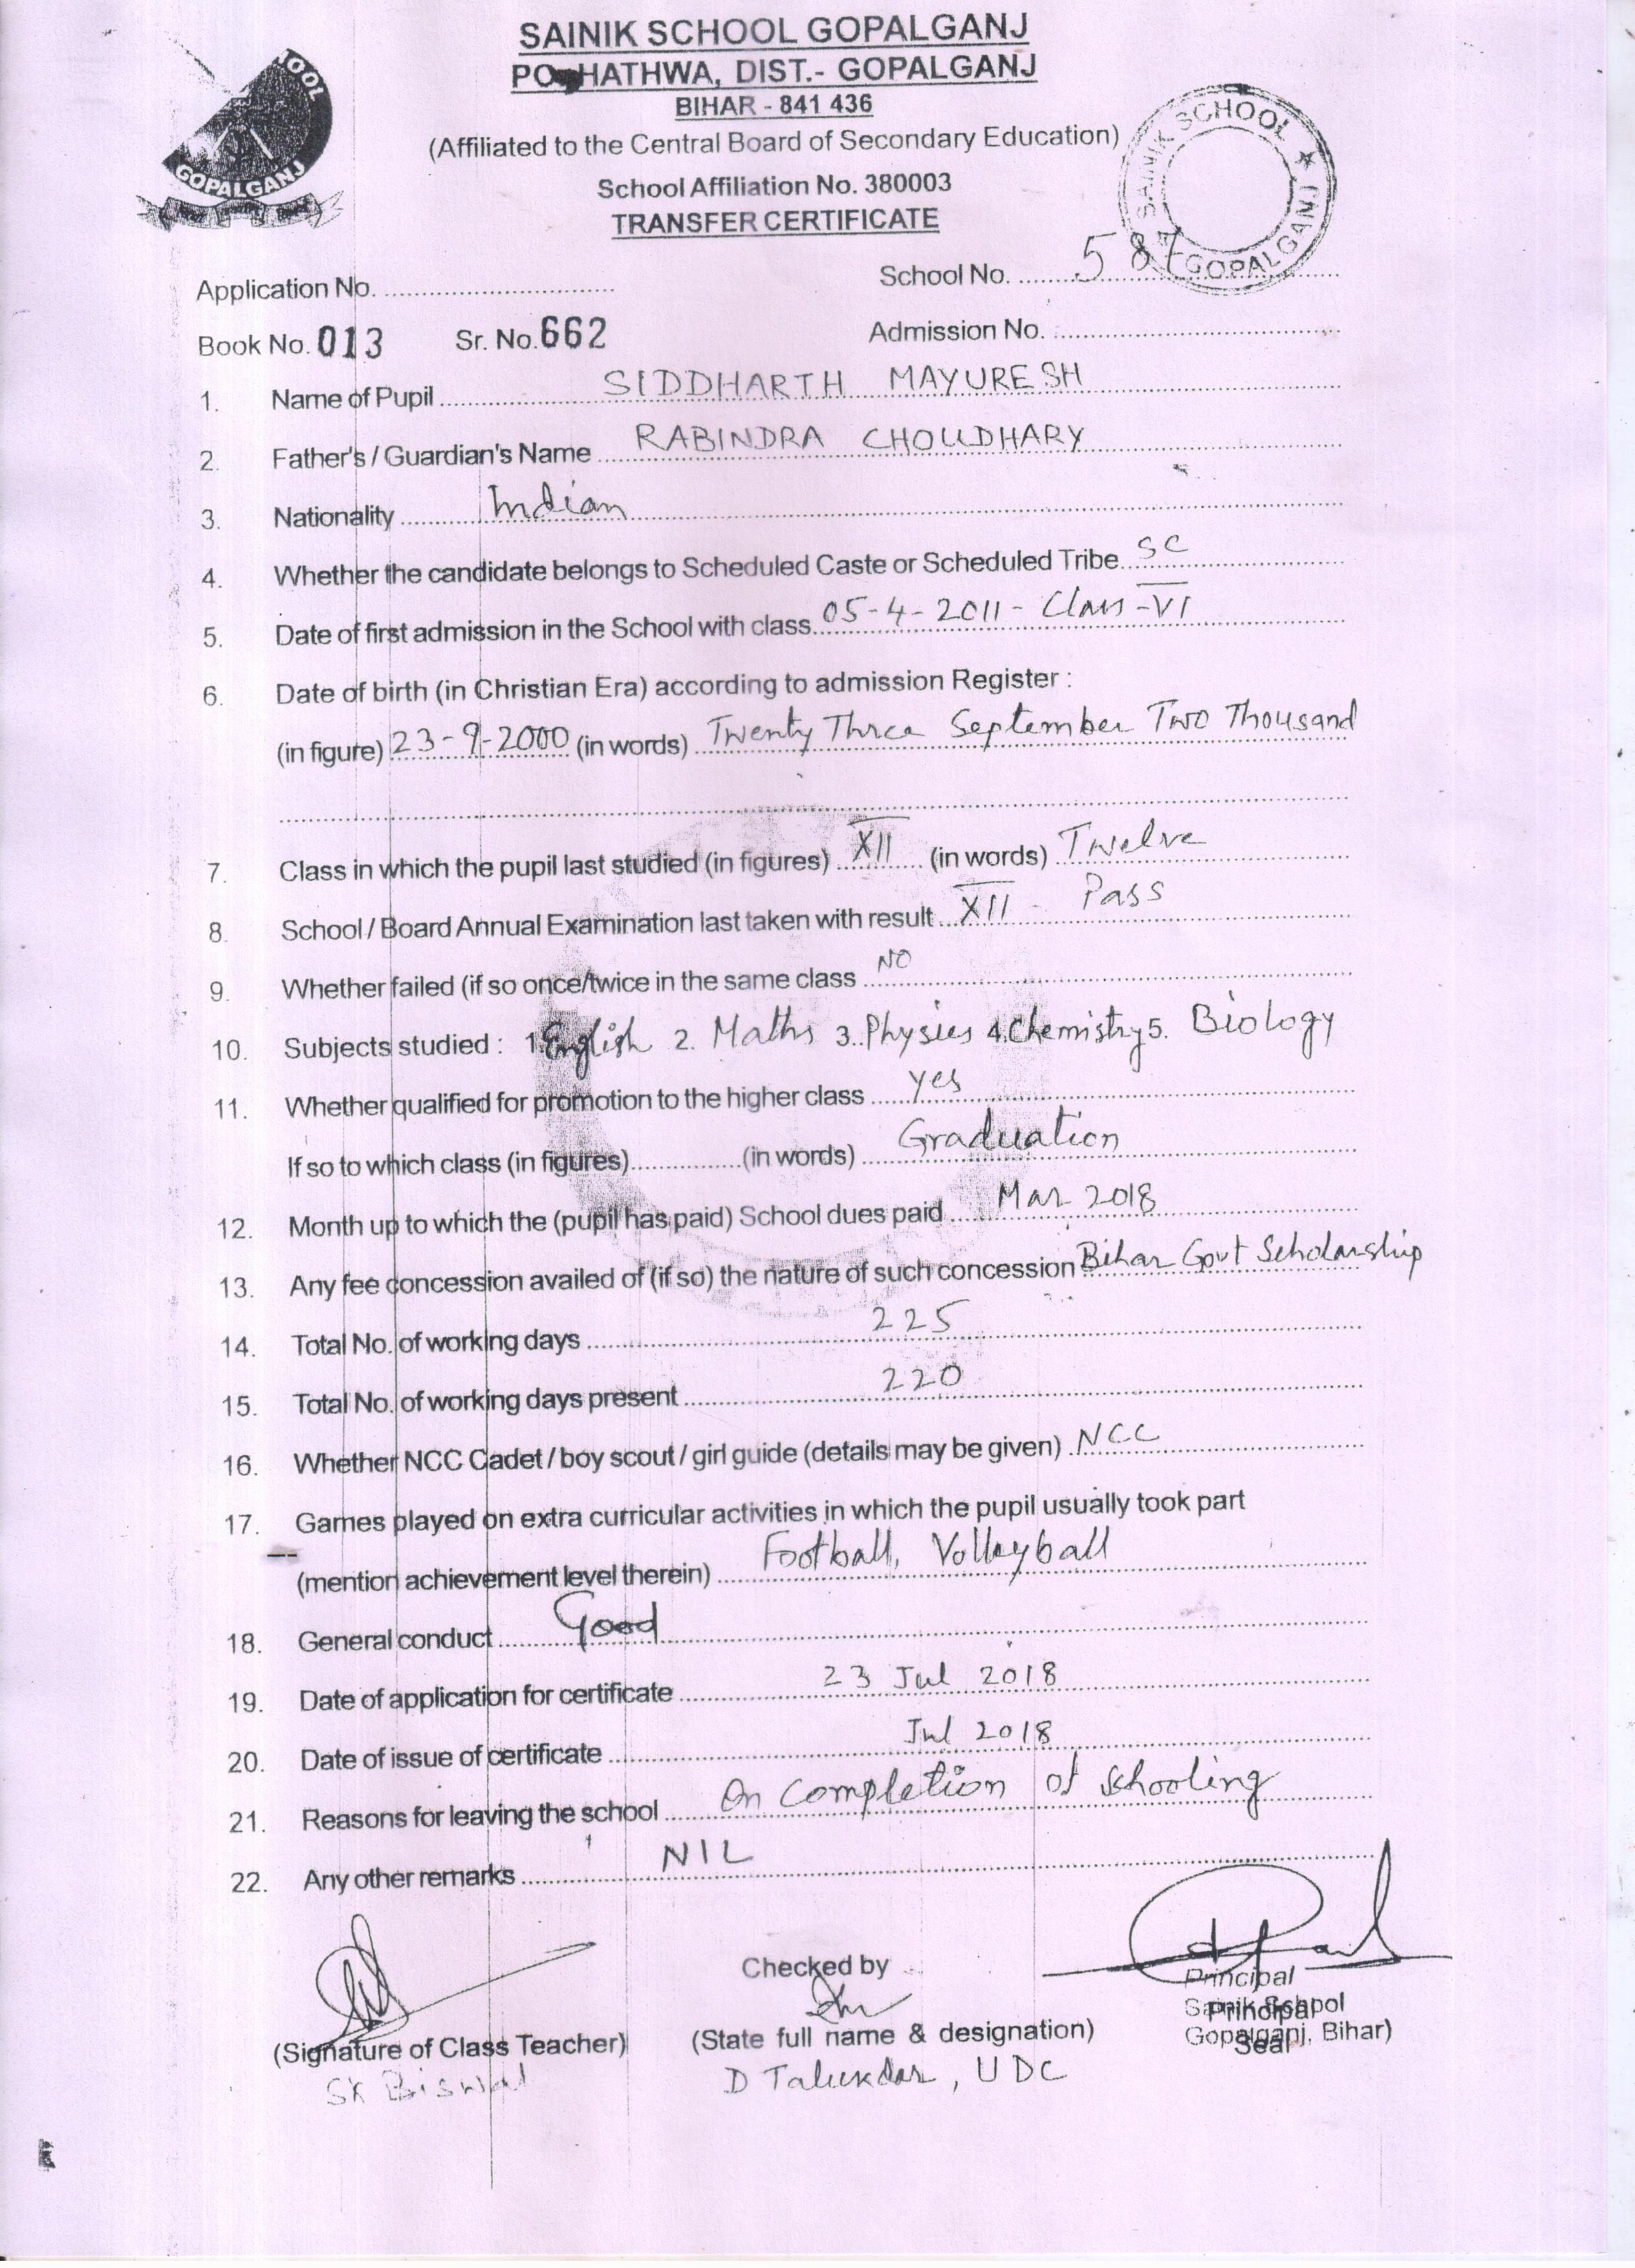 SAINIK SCHOOL GOPALGANJ
PO HATHWA, DIST.- GOPALGANJ
BIHAR - 841 436
(Affiliated to the Central Board of Secondary Education)
School Affiliation No. 380003
TRANSFER CERTIFICATE
OOL
GOPALGANJ
SAINIK SCHOOL ★ GOPALGANJ
Application No. School No. 587
Book No. 013 Sr. No. 662 Admission No.
1. Name of Pupil SIDDHARTH MAYURESH
2. Father's / Guardian's Name RABINDRA CHOUDHARY
3. Nationality Indian
4. Whether the candidate belongs to Scheduled Caste or Scheduled Tribe SC
5. Date of first admission in the School with class 05-4-2011- Class-VI
6. Date of birth (in Christian Era) according to admission Register :
(in figure) 23-9-2000 (in words) Twenty Three September Two Thousand
7. Class in which the pupil last studied (in figures) XII (in words) Twelve
8. School / Board Annual Examination last taken with result XII - Pass
9. Whether failed (if so once/twice in the same class NO
10. Subjects studied : 1. English 2. Maths 3. Physics 4. Chemistry 5. Biology
11. Whether qualified for promotion to the higher class yes
If so to which class (in figures) (in words) Graduation
12. Month up to which the (pupil has paid) School dues paid Mar 2018
13. Any fee concession availed of (if so) the nature of such concession Bihar Govt Scholarship
14. Total No. of working days 225
15. Total No. of working days present 220
16. Whether NCC Cadet / boy scout / girl guide (details may be given) NCC
17. Games played on extra curricular activities in which the pupil usually took part
(mention achievement level therein) Football, Volleyball
18. General conduct Good
19. Date of application for certificate 23 Jul 2018
20. Date of issue of certificate Jul 2018
21. Reasons for leaving the school On Completion of schooling
22. Any other remarks NIL
Checked by
(Signature of Class Teacher) (State full name & designation)
SK Biswal D Talukdar, UDC
Principal
Sainik School
Gopalganj, Bihar)
Principal
Seal